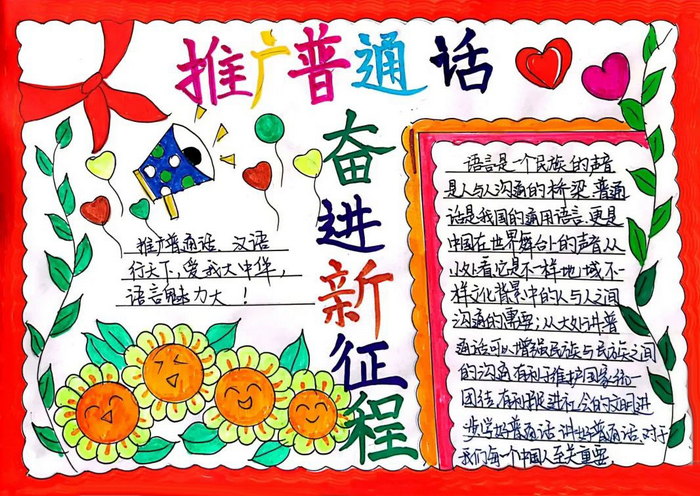 推广普通话
奋进新征程
推广普通话 汉语
行天下,爱我大中华,
语言魅力大!
语言是一个民族的声音
是人与人沟通的桥梁.普通
话是我国的通用语言.更是
中国在世界舞台外的声音从
小处看它是不一样地域不一
样文化背景中的人与人之间
沟通的需要;从大处讲普
通话可以增强民族与民族之间
的沟通有利于维护国家统一
团结有利推进社会的文明进
步学好普通话讲好普通话.对于
我们每一个中国人至关重要